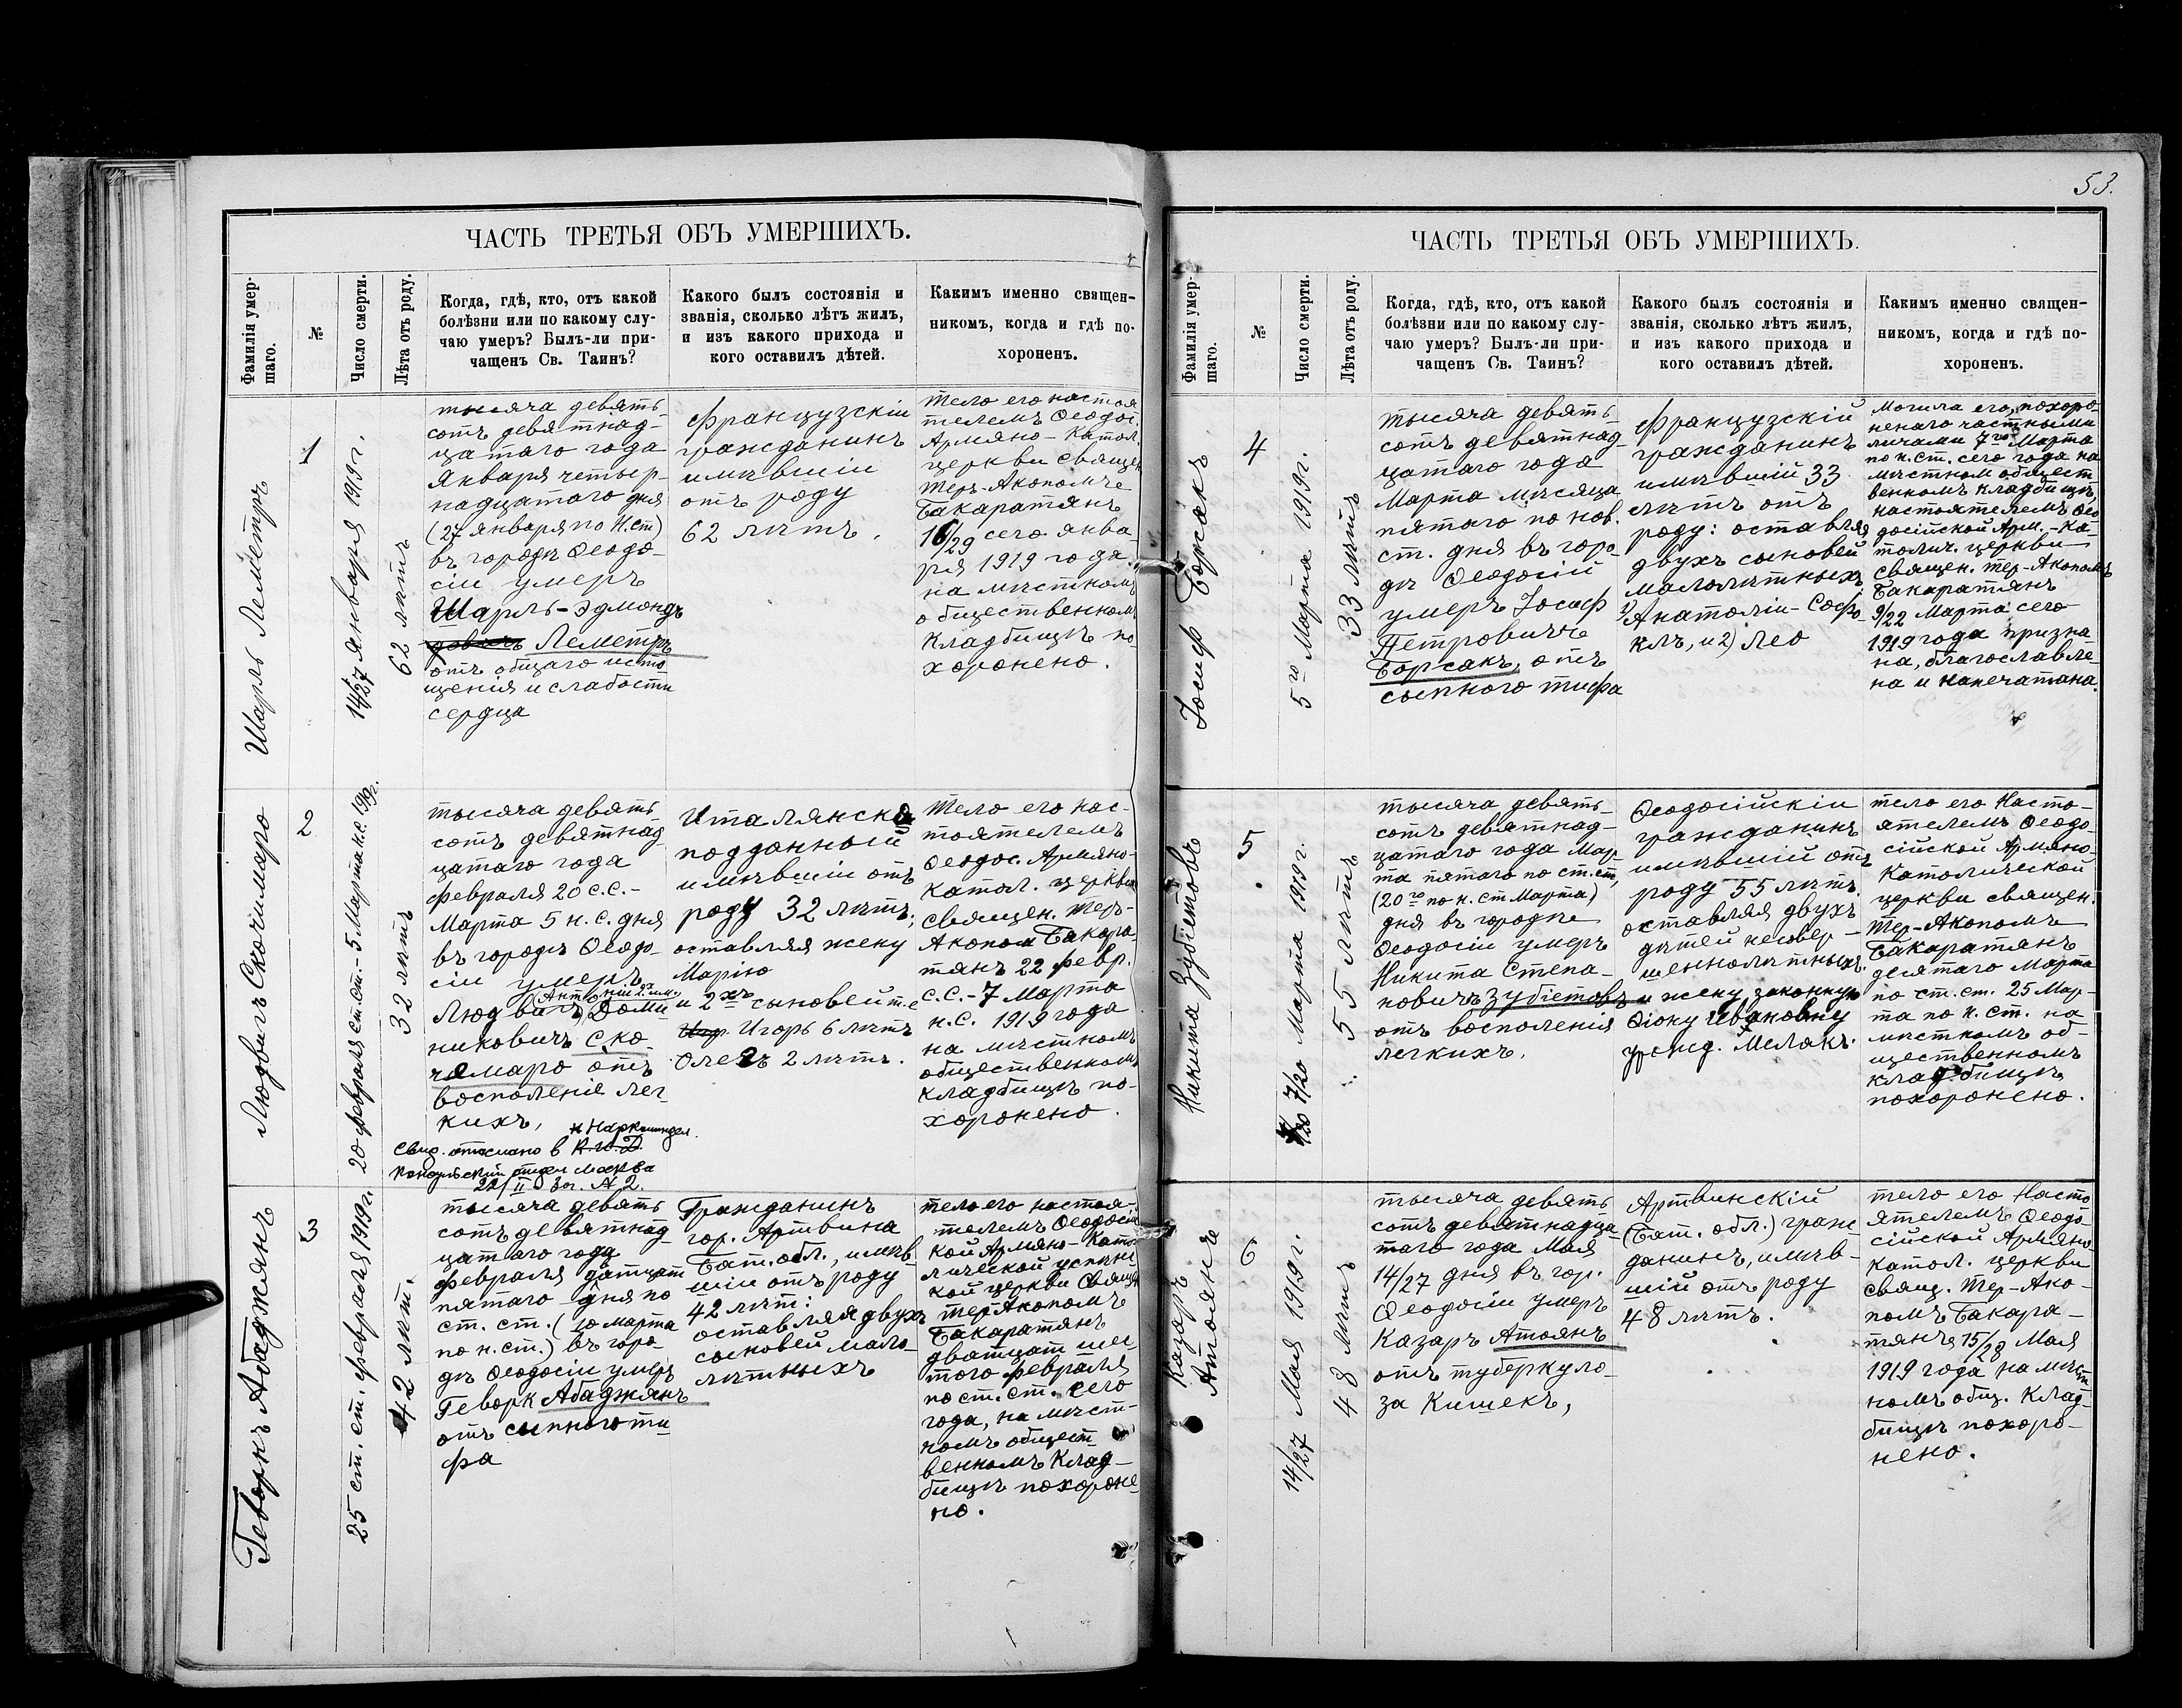 53.
ЧАСТЬ ТРЕТЬЯ ОБЪ УМЕРШИХЪ.
Фамилія умер-
шаго.
№
Число смерти.
Лѣта отъ роду.
Когда, гдѣ, кто, отъ какой
болѣзни или по какому слу-
чаю умеръ? Былъ-ли при-
чащенъ Св. Таинъ?
Какого былъ состоянія и
званія, сколько лѣтъ жилъ,
и изъ какого прихода и
кого оставилъ дѣтей.
Какимъ именно священ-
никомъ, когда и гдѣ по-
хороненъ.
Шарль Леметръ
1
14/27 января 1919 г.
62 лѣтъ
тысяча девять-
сотъ девятнад-
цатаго года
Января четыр-
надцатаго дня
(27 января по н. ст)
въ городѣ Ѳеодо-
сіи умеръ
Шарль-Эдмондъ
Леметръ
отъ общаго исто
щенія и слабости
сердца
Французскіи
гражданинъ
имѣвшіи
отъ роду
62 лѣтъ.
Тело его настоя
телемъ Ѳеодос.
Армяно-Катол.
церкви Священ
Теръ-Акопомъ
Бакаратянъ
16/29 сего янва
ря 1919 года
на мѣстномъ
общественномъ
кладбищѣ по-
хоронено.
Людвигъ Скочимаро
2
20 февраля ст. ст. - 5 Марта н. с. 1919 г.
32 лѣтъ
тысяча девять
сотъ девятнад
цатаго года
февраля 20 с. с. -
Марта 5 н. с. дня
въ городѣ Ѳеодо-
сіи умеръ
(Антоній 2ое им.)
Людвигъ Доми
никовичъ Ско-
чимаро отъ
восполеніе лег-
кихъ,
Свид. отослано в Н.И.Д. Наркоминдел.
Консульский отдел Москва
22/II за № 2.
Италянскій
подданный
имѣвшіи отъ
роду 32 лѣтъ;
оставляя жену
Марію
и 2хъ сыновей т. е
Игорь 6 лѣтъ
Олегъ 2 лѣтъ.
Тело его нас-
тоятелемъ
Ѳеодос. Армяно-
катол. церкви
священ. Теръ-
Акопом Бакара-
тянъ 22 февр.
с. с. - 7 Марта
н. с. 1919 года
на мѣстномъ
общественномъ
кладбищѣ по-
хоронено.
Геворкъ Абаджянъ
3
25 ст. ст. февраля 1919 г.
42 лѣт.
тысяча девять
сотъ девятнад
цатаго года
февраля двтцат
пятаго дня по
ст. ст. (10 марта
по н. ст.) въ горо-
дѣ Ѳеодосіи умеръ
Геворк Абаджянъ
отъ сыпного ти
фа
Гражданинъ
гор. Артвина
Бат. обл., имѣв
шіи отъ роду
42 лѣт:
оставляя двухъ
сыновей мало-
лѣтныхъ
тело его настоя-
телемъ Ѳеодосій
кой Армяно-Като
лической
кой церкви Священ
тер Акопомъ
Бакаратянъ
дватцат шес
того февраля
по ст. ст. сего
года, на мѣст-
номъ общест
венномъ клад-
бищѣ похороне
но.
ЧАСТЬ ТРЕТЬЯ ОБЪ УМЕРШИХЪ.
Фамилія умер-
шаго.
№
Число смерти.
Лѣта отъ роду.
Когда, гдѣ, кто, отъ какой
болѣзни или по какому слу-
чаю умеръ? Былъ-ли при-
чащенъ Св. Таинъ?
Какого былъ состоянія и
званія, сколько лѣтъ жилъ,
и изъ какого прихода и
кого оставилъ дѣтей.
Какимъ именно священ-
никомъ, когда и гдѣ по-
хороненъ.
Іосиф Борсакъ
4
5го Марта 1919 г.
33 лѣтъ
тысяча девять
сотъ девятнад
цатаго года
Марта мѣсяца
пятаго по нов.
ст. дня въ горо-
дѣ Ѳеодосій
умеръ Іосиф
Петровичъ
Борсакъ, отъ
сыпного тифа
Французскій
гражданинъ
имѣвшій 33
лѣтъ отъ
роду: оставляя
двухъ сыновей
малолѣтныхъ
1) Анатоліи-Софо
клъ, и 2) Лео
Могила его, похоро-
ненаго частными
личами 7го Марта
по н. ст. сего года на
мѣстном общест
венномъ кладбищѣ,
настоятелемъ Ѳео
досійской Арм.-Ка-
толич. церкви
Священ. Тер-Акопомъ
Бакаратянъ
9/22 Марта сего
1919 года призна-
на, благославле-
на и напечатана.
Никита Зубіетовъ
5
7/20 Марта 1919 г.
55 лѣтъ
тысяча девять-
сотъ девятнад-
цатаго года Мар-
та пятаго по ст. ст,
(20го по н. ст Марта)
дня въ городѣ
Ѳеодосіи умеръ
Никита Степа-
новичъ Зубіетовъ
отъ восполенія
легкихъ,
Ѳеодосійскіи
гражданинъ
имѣвшій отъ
роду 55 лѣтъ
оставляя двухъ
дѣтей несовер-
шеннолѣтныхъ.
и жену законную
Ѳіону Ивановну
урожд. Мелакъ.
тело его Насто-
ятелемъ Ѳеодо-
сійской Армяно-
Католической
церкви священ.
Тер-Акопомъ
Бакаратянъ
девятаго Марта
по ст. ст. 25 Мар-
та по н. ст. на
мѣстномъ об-
щественномъ
кладбищѣ
похоронено.
Казаръ
Атоянъ
6
14/27 Мая 1919 г.
48 лѣтъ
тысяча девять
сотъ девятнадца-
таго года Мая
14/27 дня въ гор.
Ѳеодосіи умеръ
Казаръ Атоянъ
отъ туберкуло-
за Кишекъ,
Артвинскій
(Бат. обл.) граж
данинъ, имѣв-
шій отъ роду
48 лѣтъ.
тело его Насто
ятелемъ Ѳеодо-
сійской Армяно-
катол. церкви
свящ. Тер-Ако-
помъ Бакара-
тянъ 15/28 Мая
1919 года на мѣст
номъ общ. клад-
бищѣ похоро-
нено.